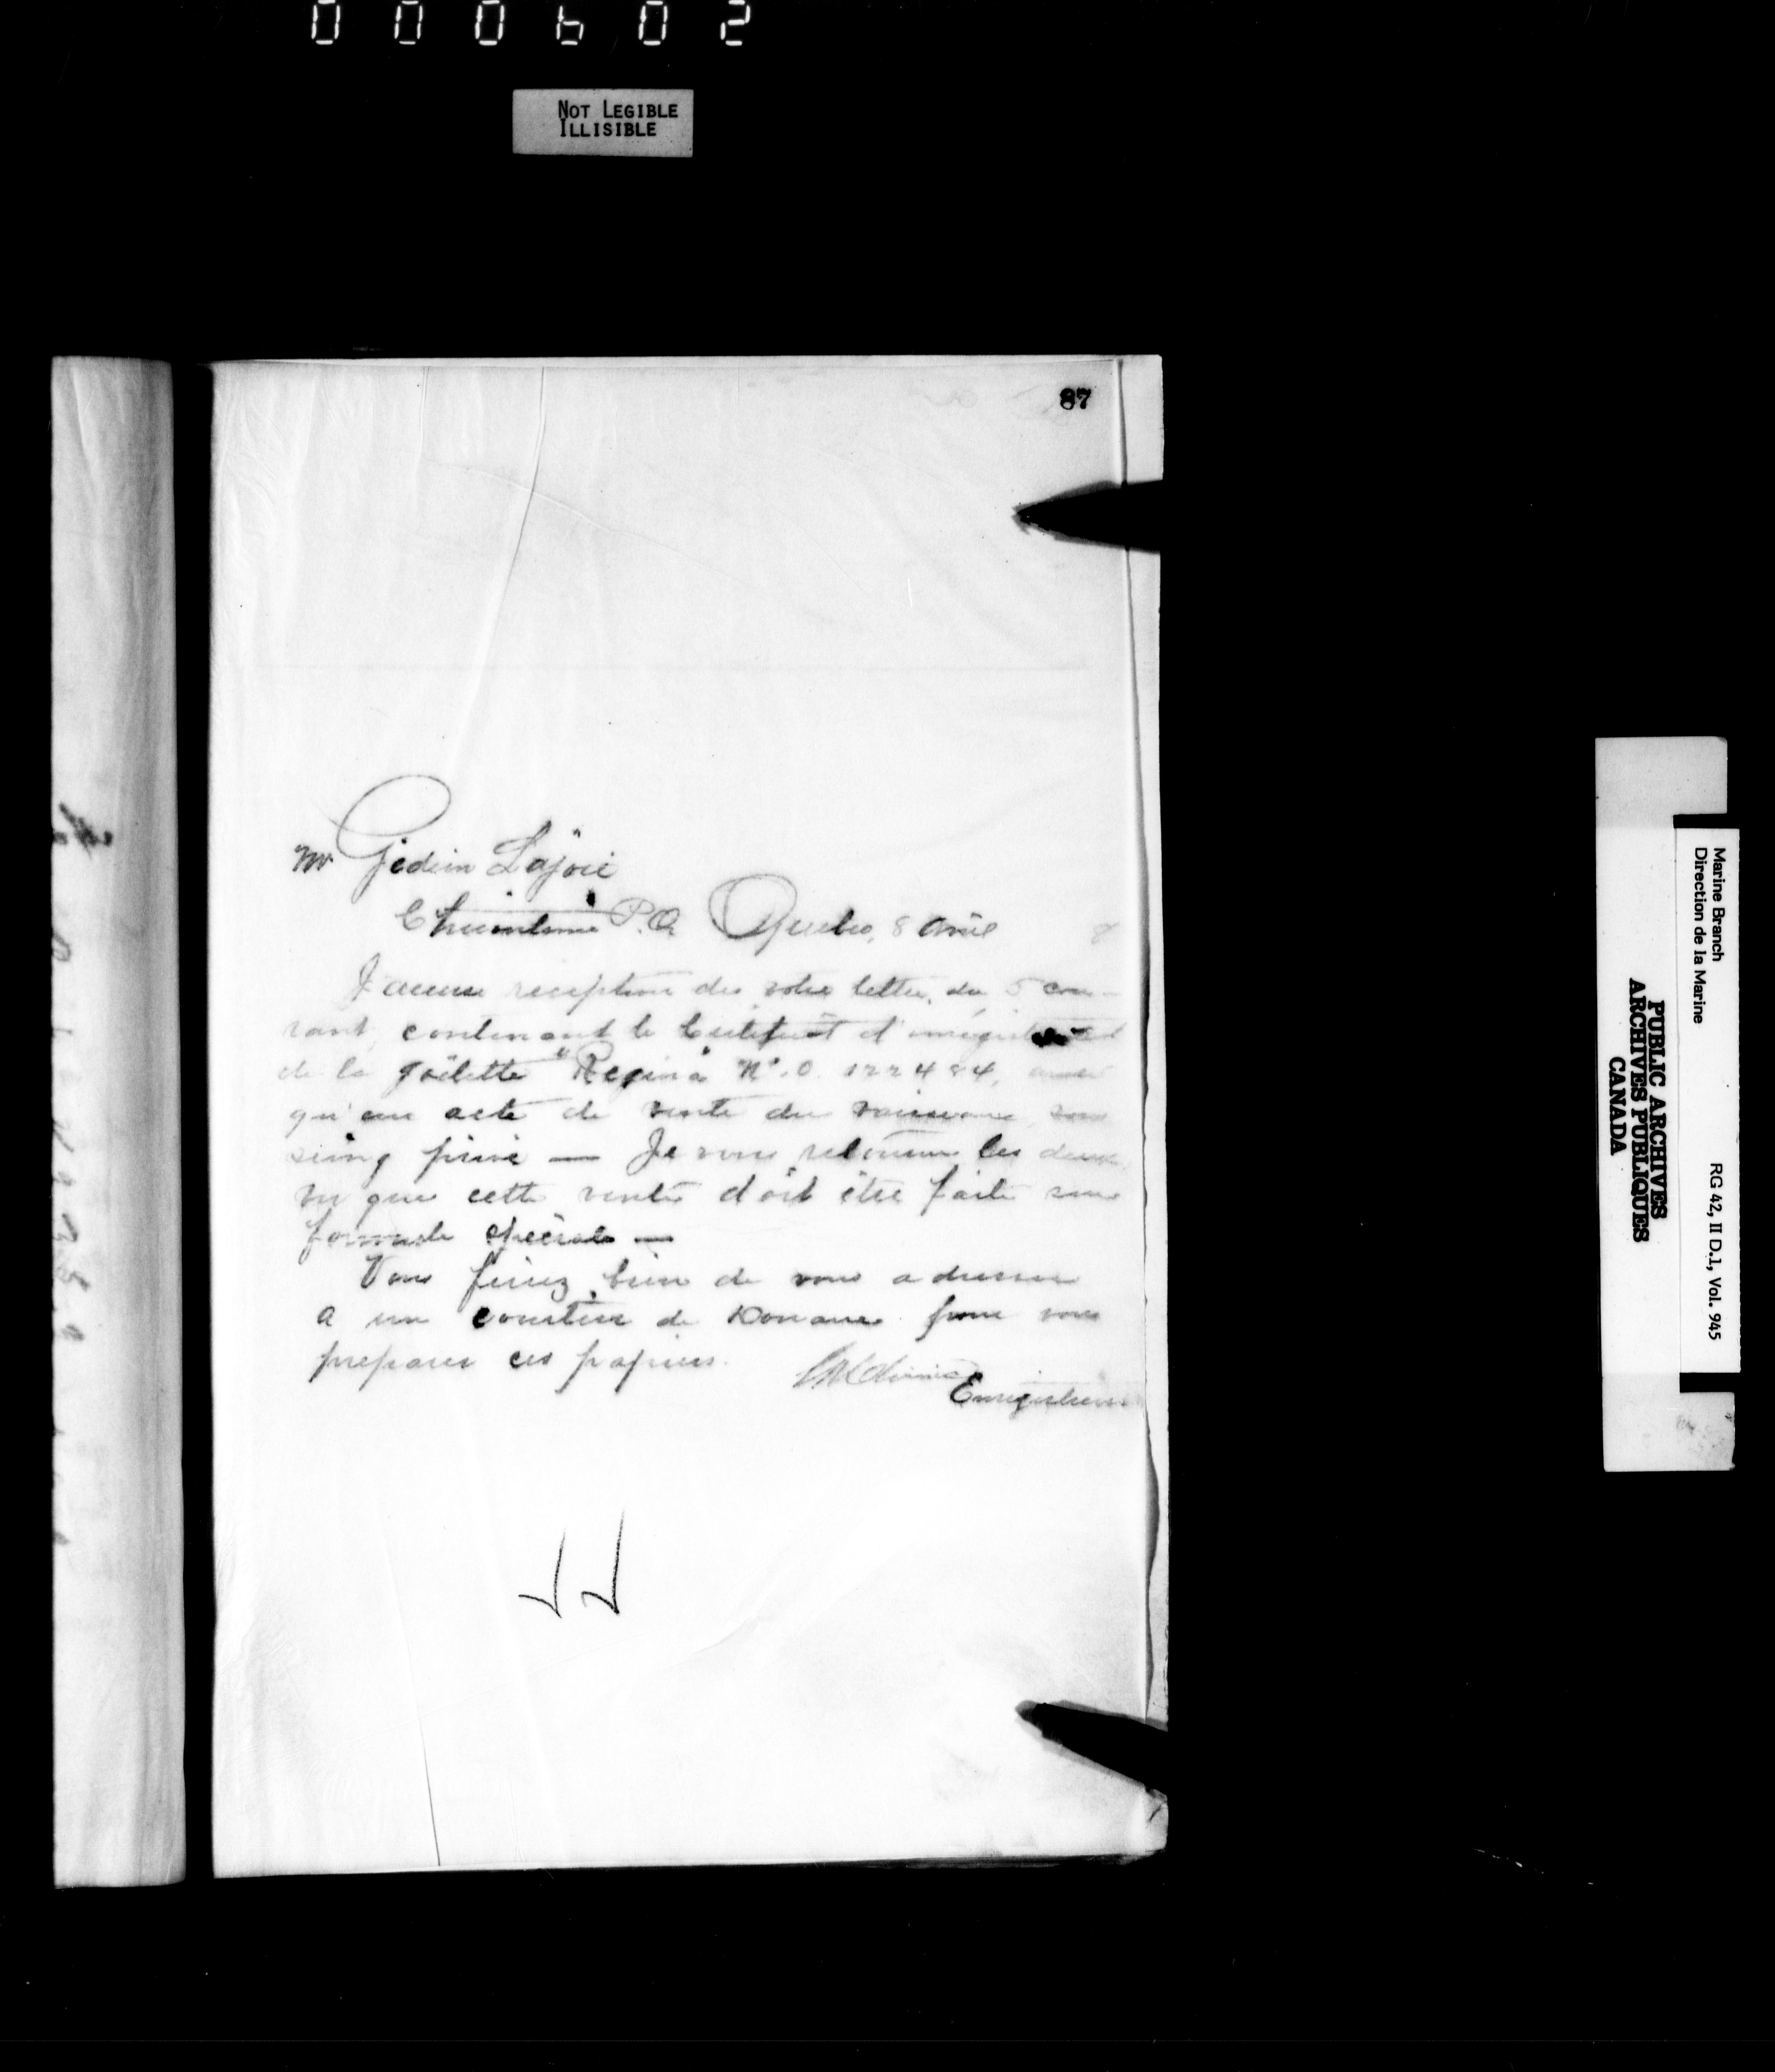 000602
NOT LEGIBLE
ILLISIBLE
87
Mr Gedeon Lajoie
P.Q. Quebec, 8 Avril
J'accuse reception de votre lettre, du 5 cou-
rant, contenant le Certificat d'enregistrement
de la goëlette "Regina" N°. O. 122484,
qu'un acte de vente du vaisseau, sous
seing privé — Je vous retourne les deux,
vu que cette vente doit être faite sur
formule speciale —
Vous feriez bien de vous adresser
a un courtier de Douane pour vous
preparer ces papiers.
Enregistreur
Marine Branch
Direction de la Marine
RG 42, II D.1, Vol. 945
PUBLIC ARCHIVES
ARCHIVES PUBLIQUES
CANADA